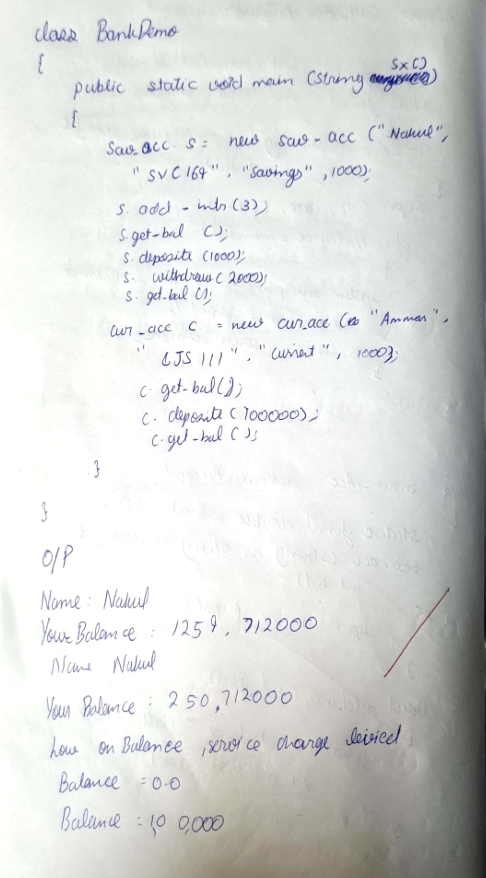 class BankDemo
{
public static void main (String sx[])
{
Sav_acc s = new sav-acc ("Nakul",
"SVC164", "Savings", 1000);
s. add-ints(3);
s.get-bal ();
s. deposite (1000);
s. withdraw( 2000);
s. get-bal ();
cur_acc c = new cur_acc ( "Amman",
"CJS 111", "Current", 1000);
c. get-bal();
c. deposite (100000);
c. get-bal ();
}
}
O/P
Name: Nakul
Your Balance : 1259.712000
Name Nakul
Your Balance : 250.712000
Low on Balance, service charge levied
Balance = 0.0
Balance = 1,0 0,000